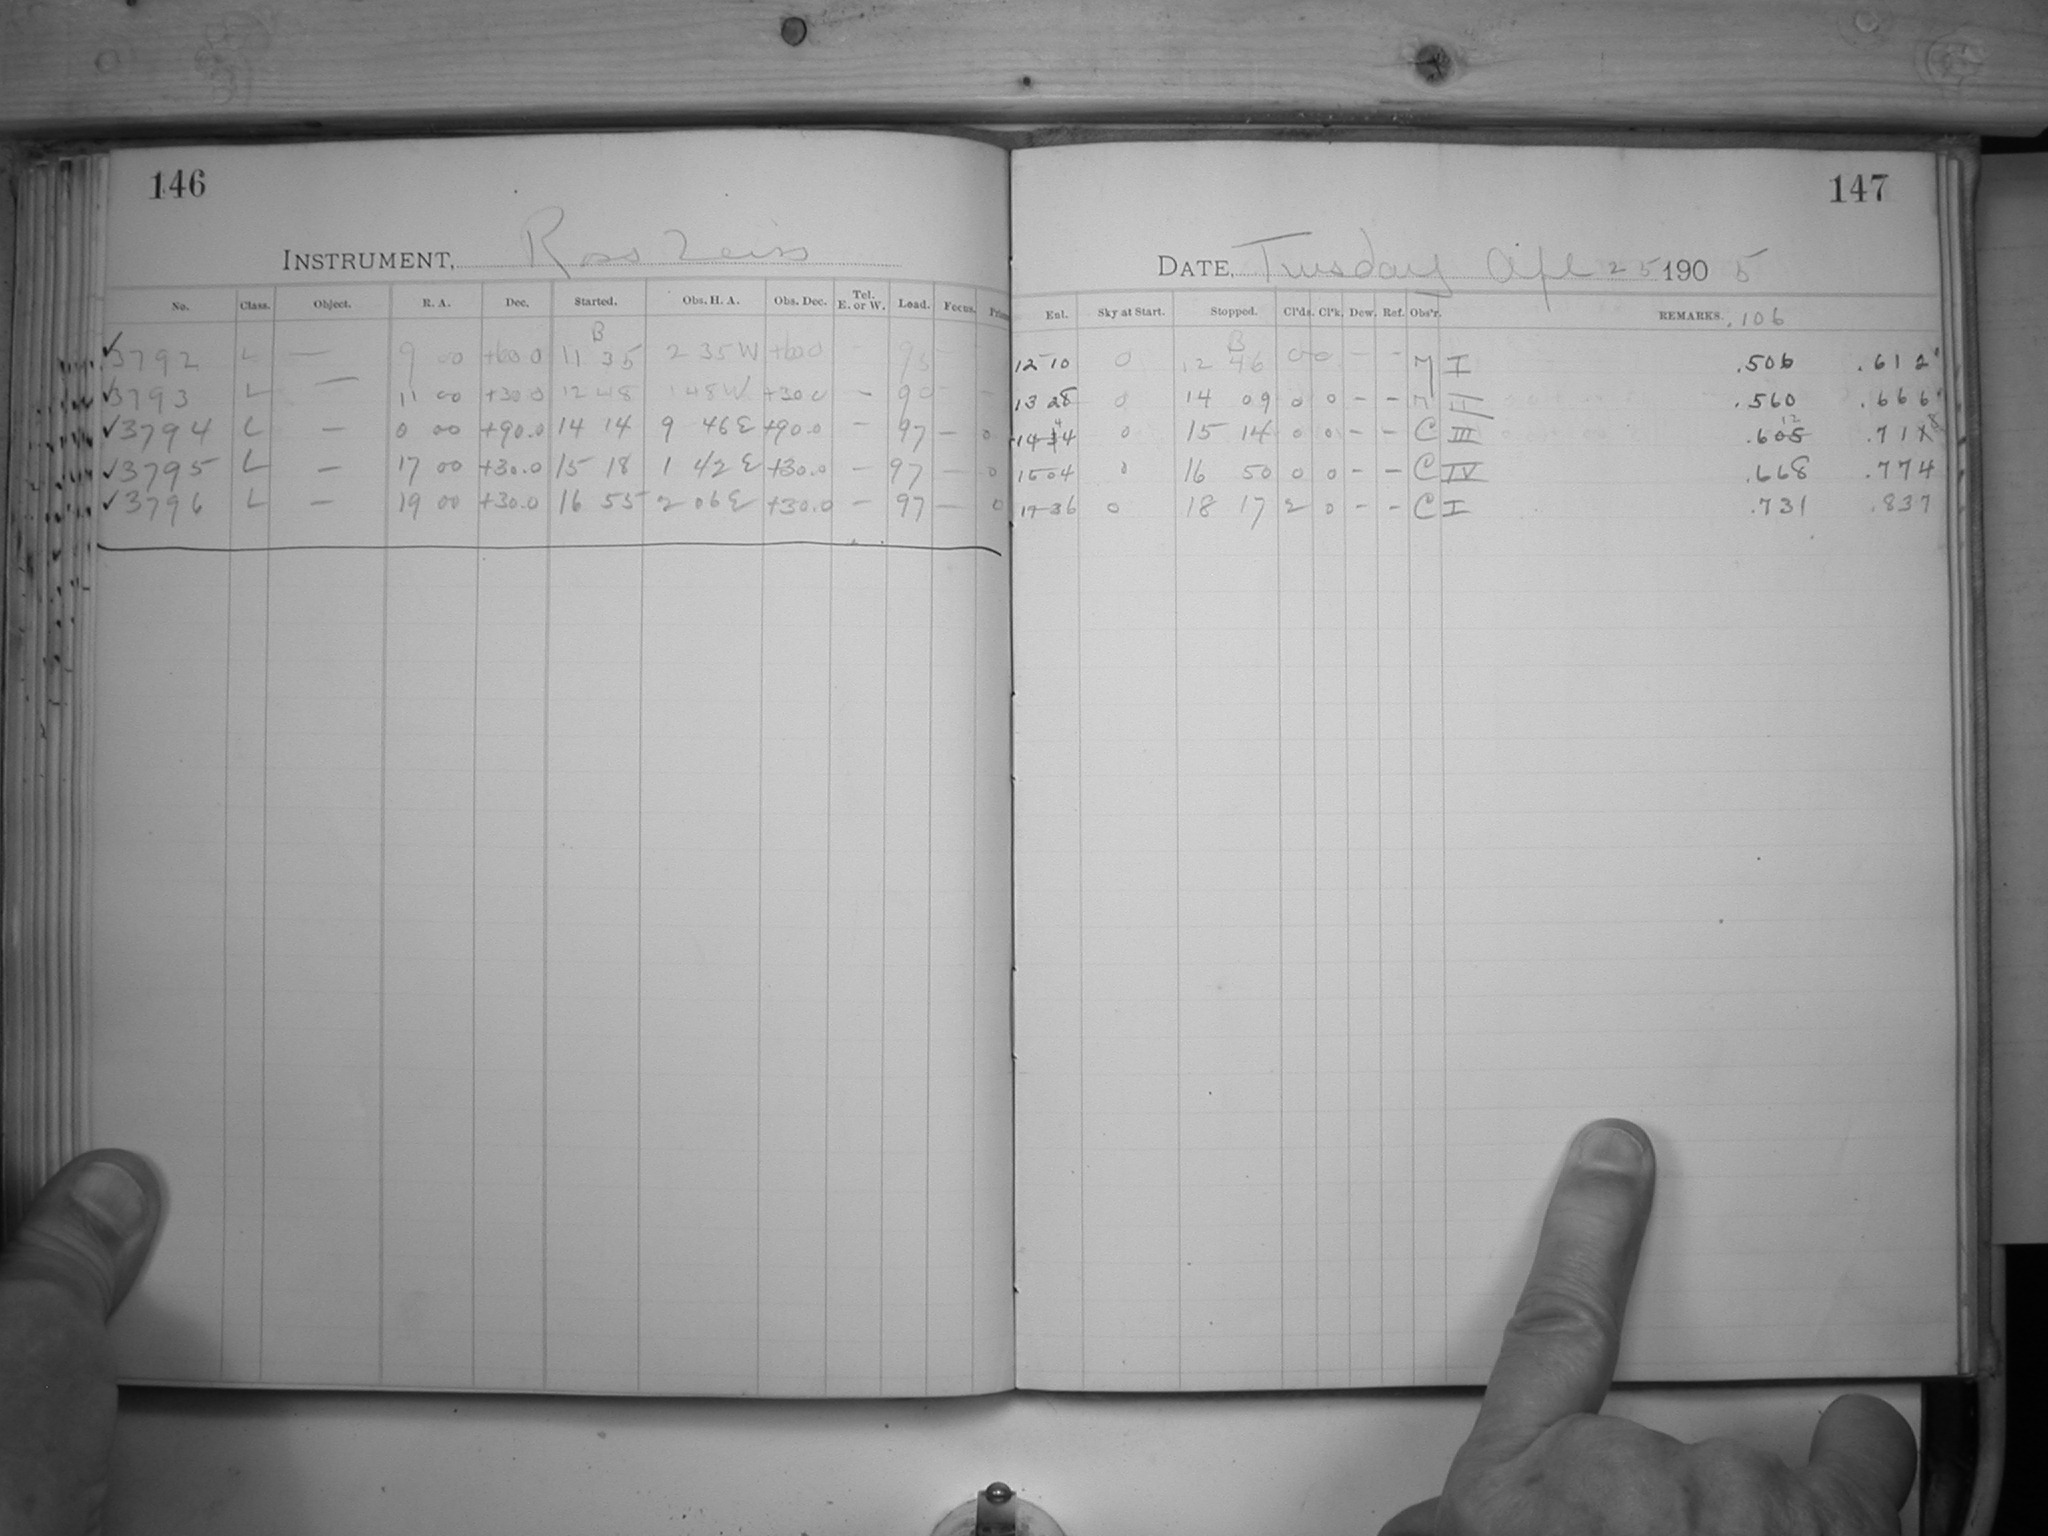 146
INSTRUMENT, Ross Zeiss
No. Class. Object. R. A. Dec. Started. Obs. H. A. Obs. Dec. Tel. E. or W. Load. Focus.
B
✓3792 L — 9 00 +60.0 11 35 2 35 W +60.0 –
✓3793 L — 11 00 +30.0 12 48 1 48 W +30.0 – 90
✓3794 L — 0 00 +90.0 14 14 9 46 E +90.0 – 97 – 0
✓3795 L — 17 00 +30.0 15 18 1 42 E +30.0 – 97 – 0
✓3796 L — 19 00 +30.0 16 55 2 06 E +30.0 – 97 – 0
147
DATE, Tuesday Apl 25 1905
Exl. Sky at Start. Stopped. Cl'ds. Cl'k. Dew. Ref. Obs'r. REMARKS. .106
B
12 10 0 12 46 0 0 – – M I .506 .612
13 28 0 14 09 0 0 – – M II .560 .666
0 15 14 0 0 – – C III .605 12
15 04 0 16 50 0 0 – – C IV .668 .774
17 36 0 18 17 2 0 – – C I .731 .837